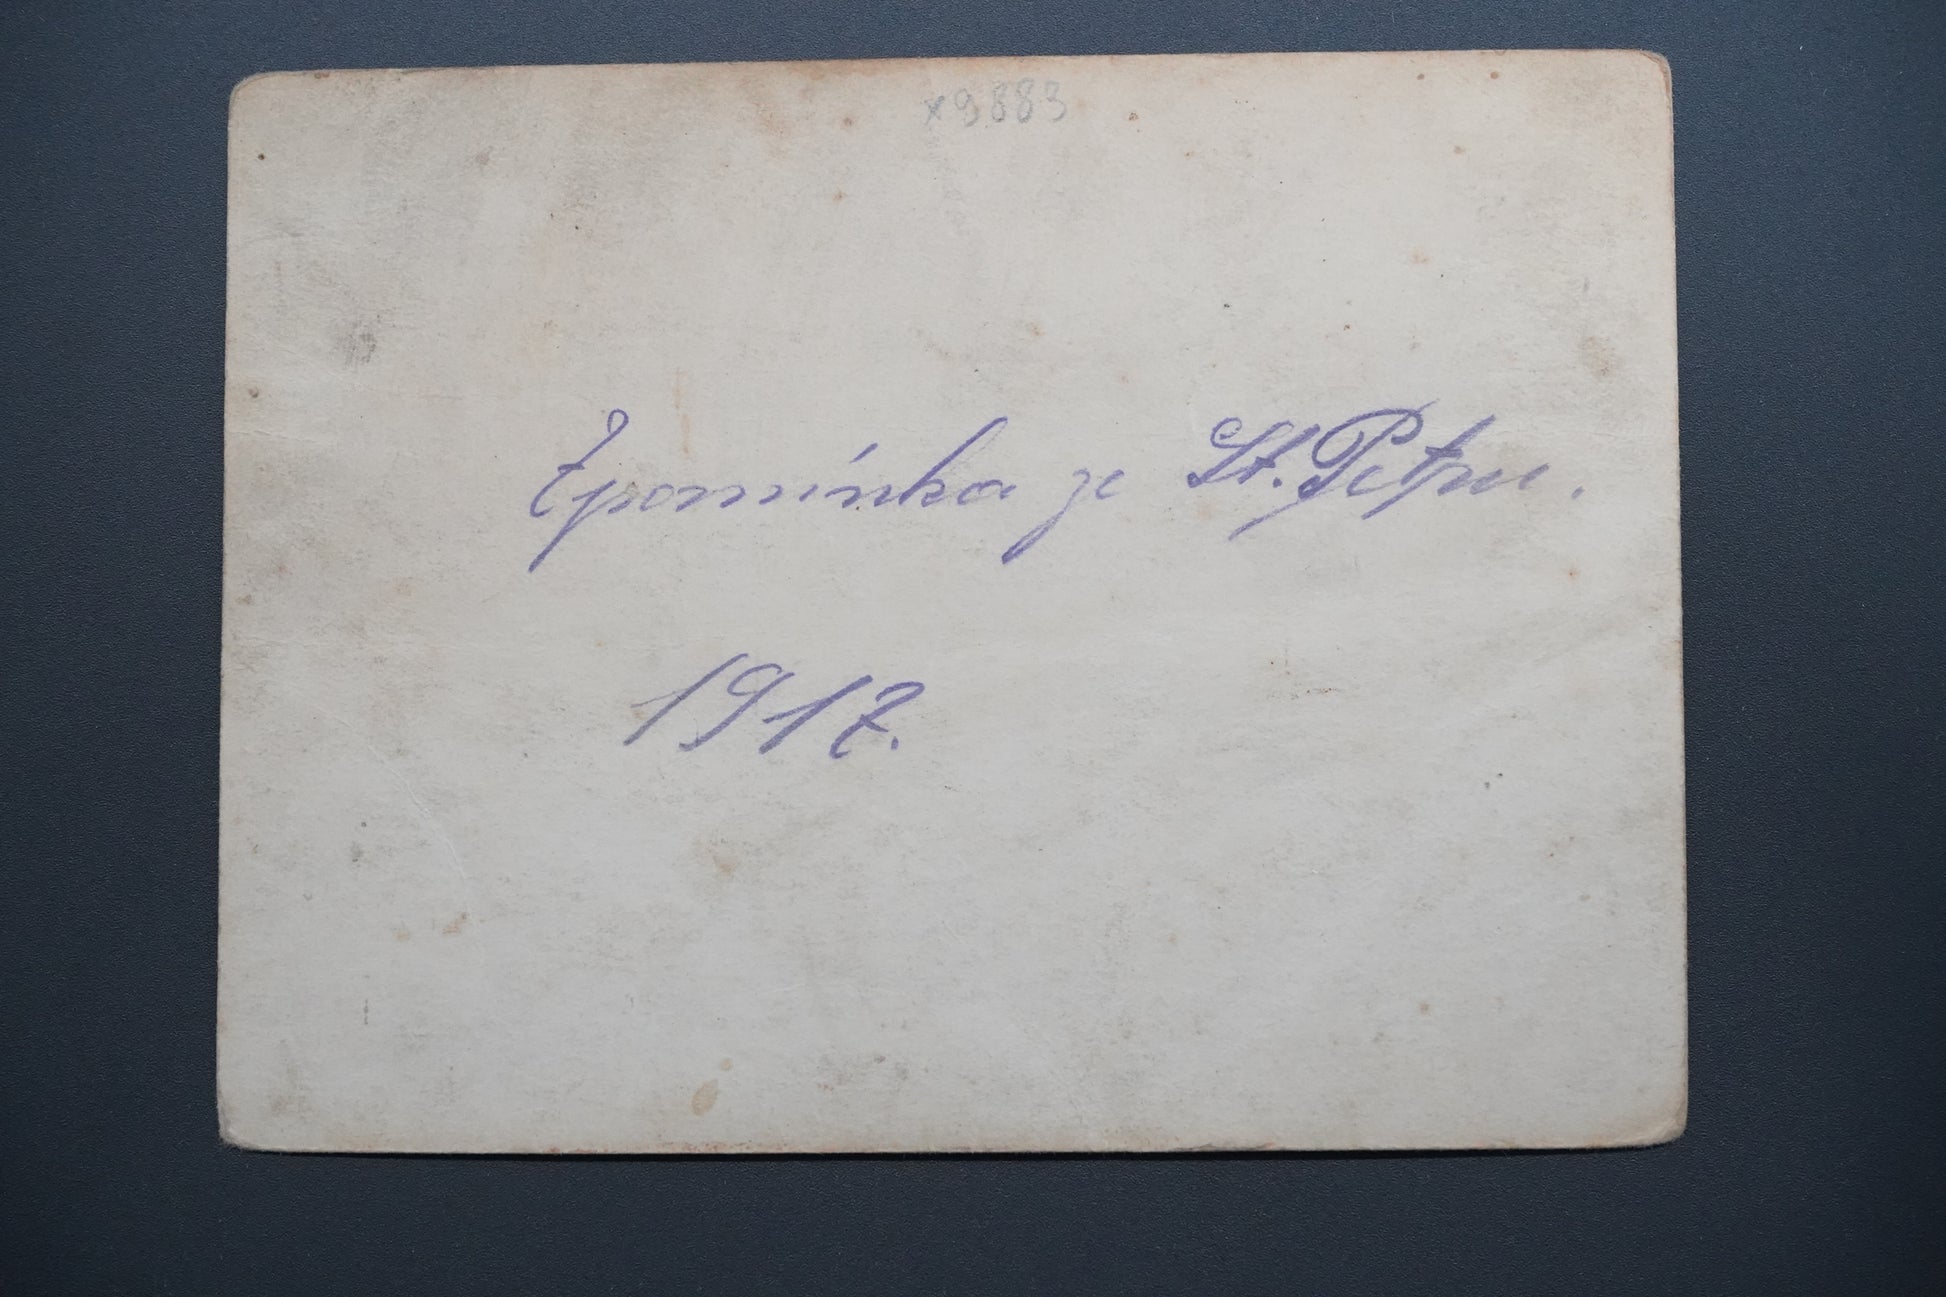 x9883
Zpomínka ze St. Petru.
1917.